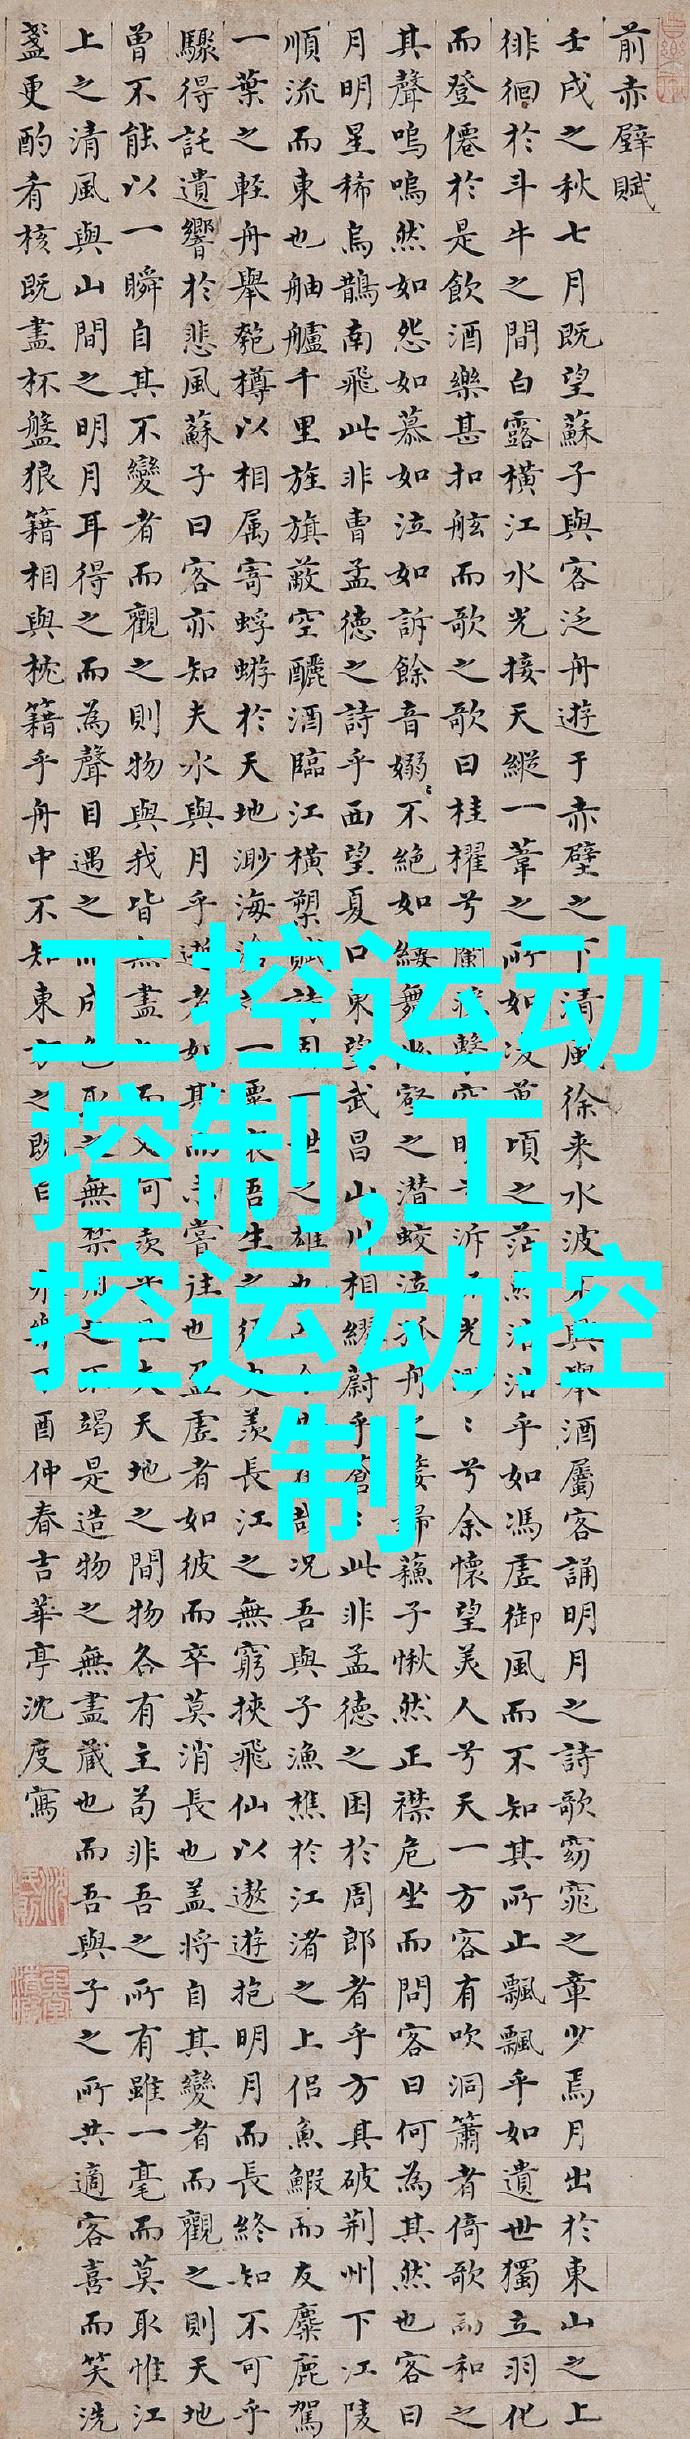 前赤壁賦
壬戌之秋七月既望蘇子與客泛舟遊于赤壁之下清風徐来水波不興舉酒屬客誦明月之詩歌窈窕之章少焉月出於東山之上
徘徊於斗牛之間白露橫江水光接天縱一葦之所如凌萬頃之茫然浩浩乎如馮虛御風而不知其所止飄飄乎如遺世獨立羽化
而登僊於是飲酒樂甚扣舷而歌之歌曰桂櫂兮蘭漿擊空明兮泝流光渺〻兮余懷望美人兮天一方客有吹洞簫者倚歌而和之
其聲嗚嗚然如怨如慕如泣如訴餘音嫋〻不絕如縷舞幽壑之潛蛟泣孤舟之嫠婦蘓子愀然正襟危坐而問客曰何為其然也客曰
月明星稀烏鵲南飛此非曹孟德之詩乎西望夏口東望武昌山川相繆蔚乎蒼〻此非孟德之困於周郎者乎方其破荆州下江陵
順流而東也舳艫千里旌旗蔽空釃酒臨江橫槊賦詩固一世之雄也而今安在哉况吾與子漁樵於江渚之上侣魚鰕而友麋鹿駕
一葉之輕舟舉匏樽以相属寄蜉蝣於天地渺海滄之一粟哀吾生之須臾羡長江之無窮挾飛仙以遨遊抱明月而長終知不可乎
驟得託遺響於悲風蘇子曰客亦知夫水與月乎逝者如斯而未嘗往也盈虛者如彼而卒莫消長也盖將自其變者而觀之則天地
曾不能以一瞬自其不變者而觀之則物與我皆無盡也而又何羡乎且夫天地之間物各有主苟非吾之所有雖一毫而莫取惟江
上之清風與山間之明月耳得之而為聲目遇之而成色取之無禁用之不竭是造物之無盡藏也而吾與子之所共適客喜而笑洗
盞更酌肴核既盡杯盤狼籍相與枕籍乎舟中不知東方之既白 永樂丁酉仲春吉華亭沈度寫
工控运动
控制,工
控运动控
制